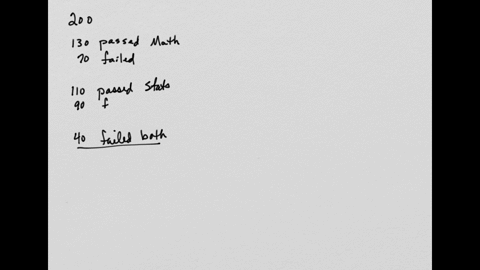 200
130 passed Math
70 failed
110 passed Stats
90 f
40 failed both